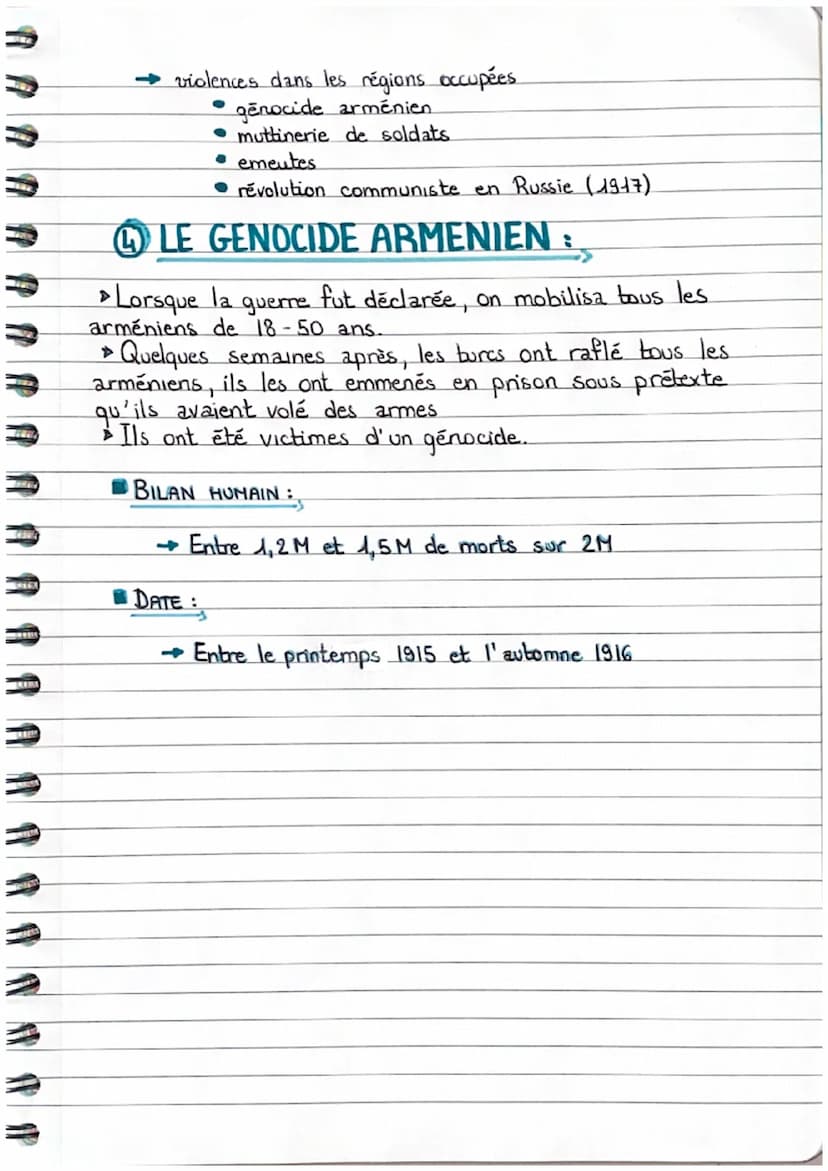 → violences dans les régions occupées
• génocide arménien
• muttinerie de soldats
• emeutes
• révolution communiste en Russie (1917)
④ LE GENOCIDE ARMENIEN :
▹ Lorsque la guerre fut déclarée, on mobilisa tous les
arméniens de 18-50 ans.
▹ Quelques semaines après, les turcs ont raflé tous les
arméniens, ils les ont emmenés en prison sous prétexte
qu'ils avaient volé des armes
▹ Ils ont été victimes d'un génocide.
■ BILAN HUMAIN :
→ Entre 1,2M et 1,5M de morts sur 2M
■ DATE :
→ Entre le printemps 1915 et l'automne 1916